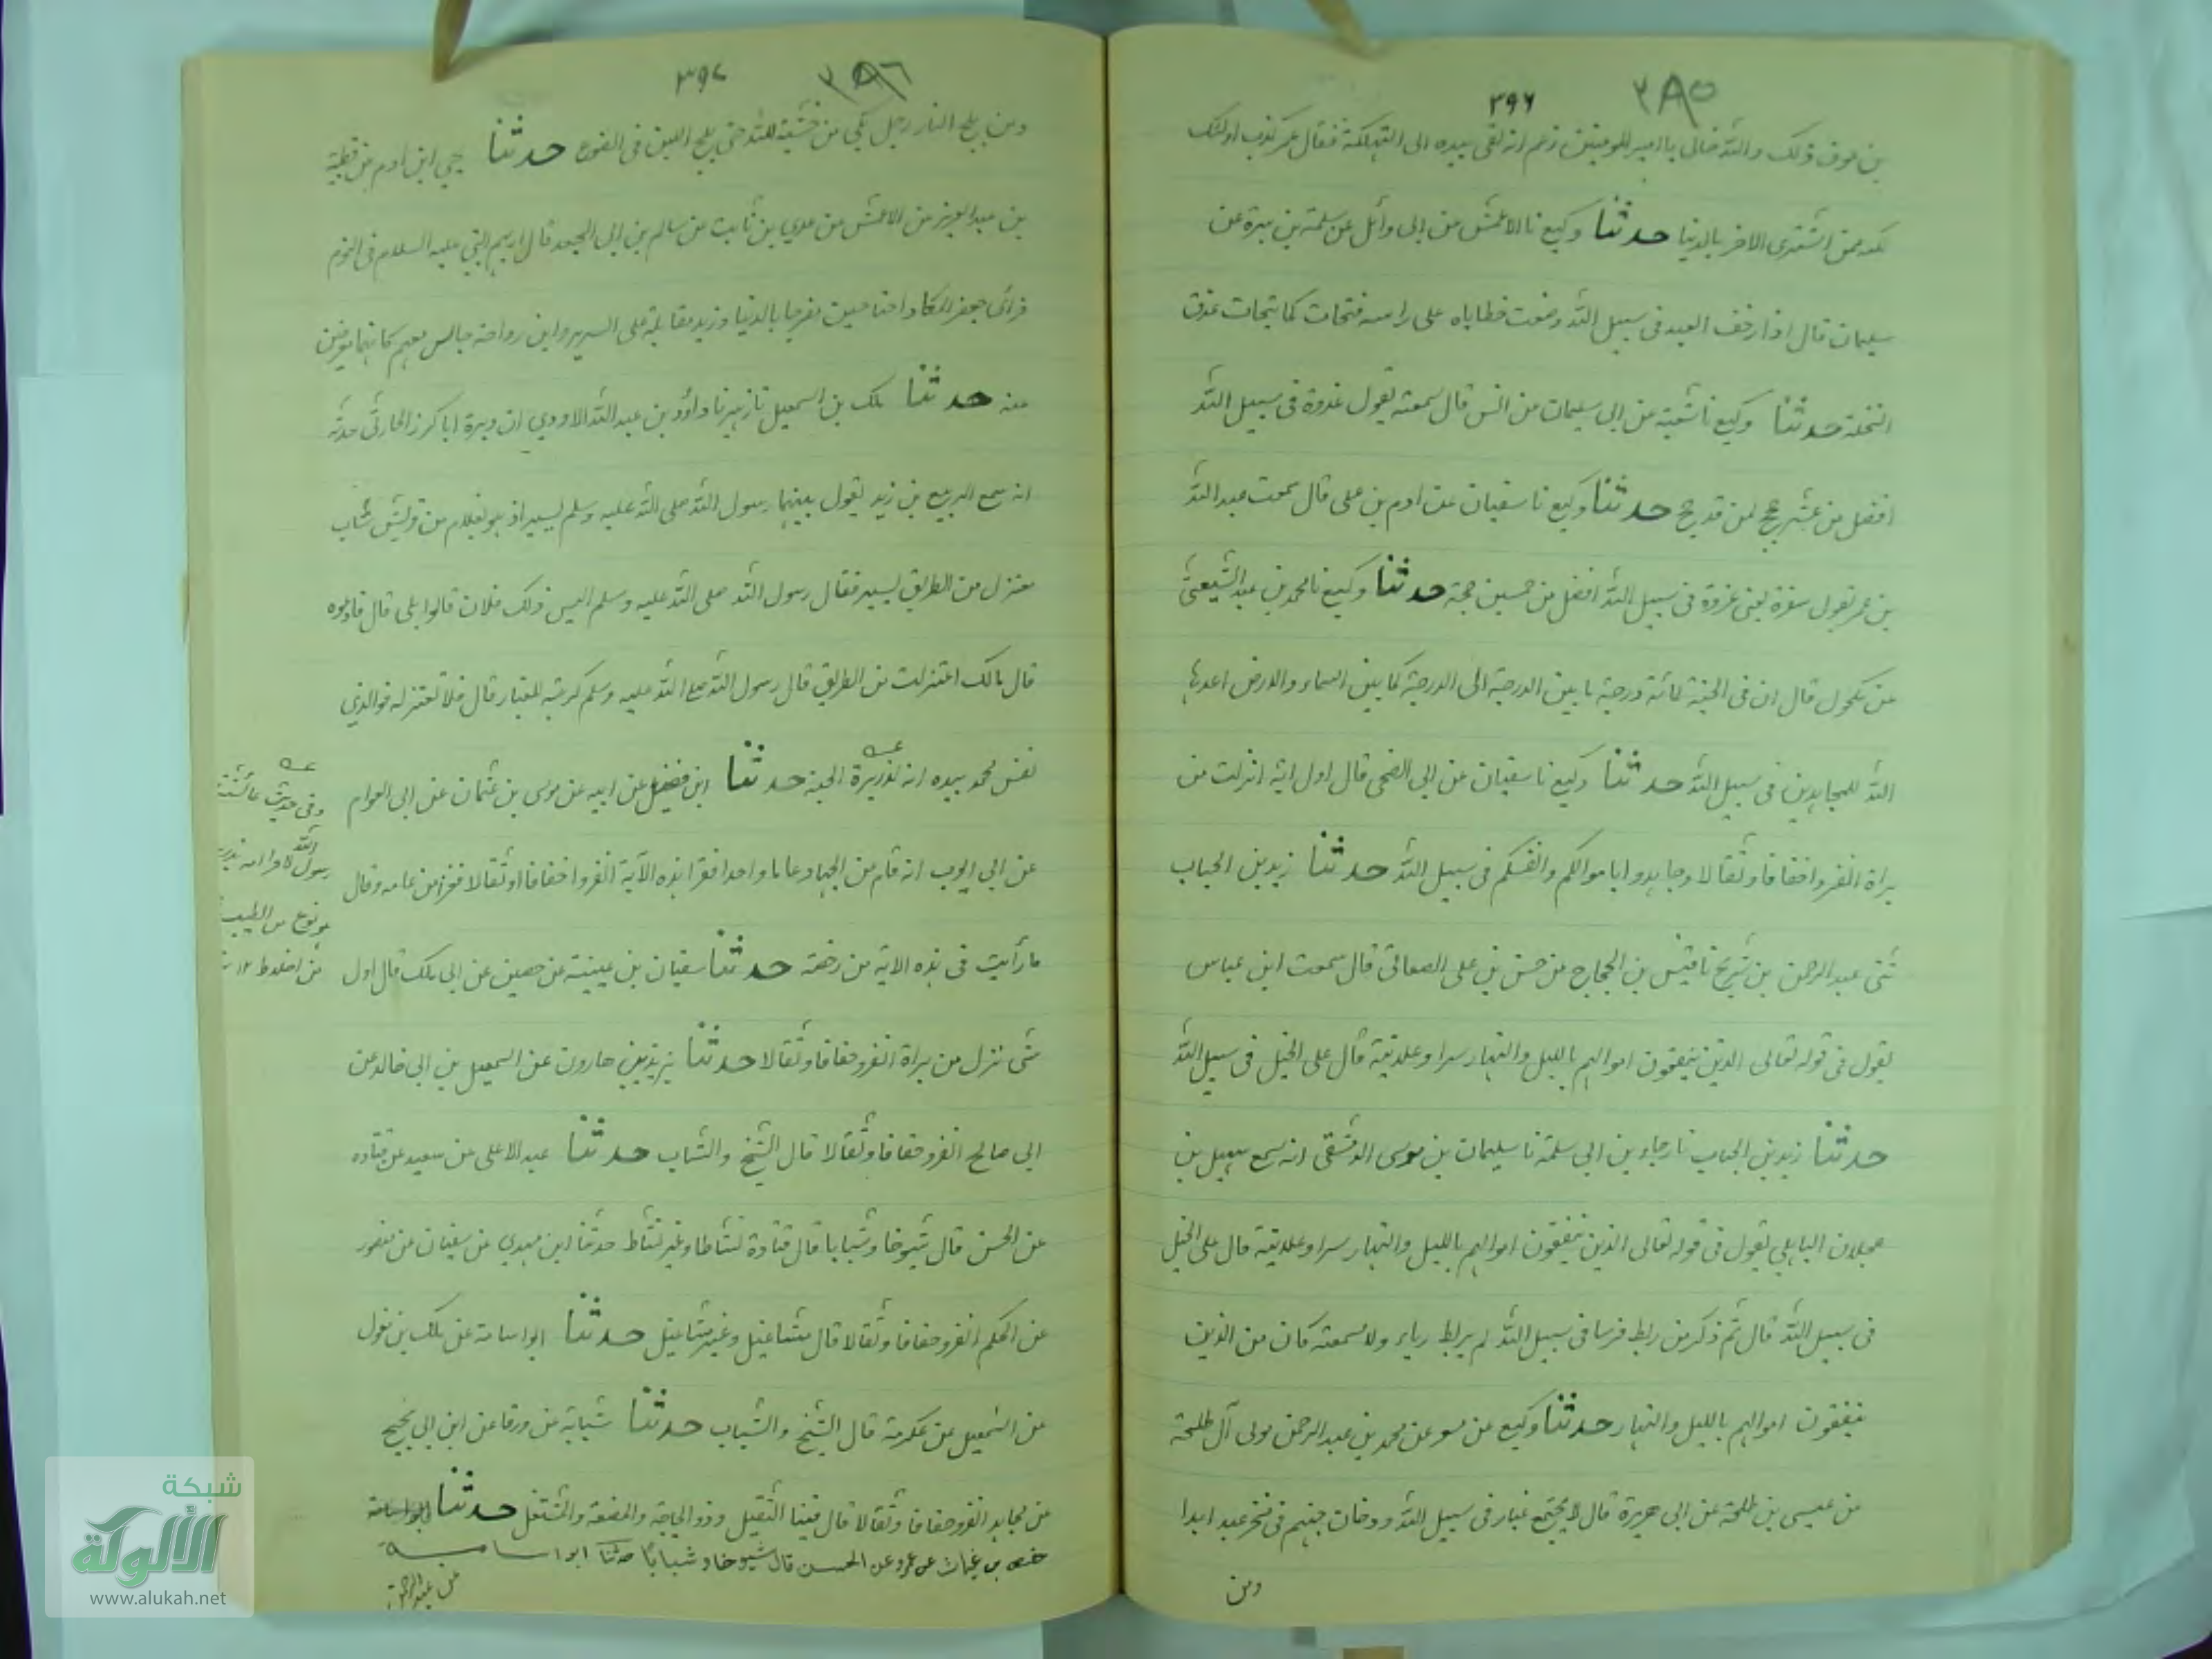 ٣٨٥
٣٩٦
بن عوف ذلك والله خالى يا امير المومنين زعم انه لقى بيده الى التهلكة فقال عمر كذب اولئك
لكنه ممن اشترى الاخر بالدنيا حدثنا وكيع نا الاعمش عن ابى وائل عن سلمة بن سبرة عن
سليمان قال اذا رجف العبد فى سبيل الله وضعت خطاياه على راسه فتحات كما يتحات عذق
النخلة حدثنا وكيع نا شعبة عن ابى سليمان عن انس قال سمعته يقول غدوة فى سبيل الله
افضل من عشر حجج لمن قد حج حدثنا وكيع نا سفيان عن ادم بن على قال سمعت عبد الله
بن عمر يقول سفرة يعنى غزوة فى سبيل الله افضل من خمسين حجة حدثنا وكيع نا محمد بن عبد الله الشعيثى
عن مكحول قال ان فى الجنة لمائة درجة ما بين الدرجة الى الدرجة كما بين السماء والارض اعدها
الله للمجاهدين فى سبيل الله حدثنا وكيع نا سفيان عن ابى الضحى قال اول اية انزلت من
براة انفروا خفافا وثقالا وجاهدوا باموالكم وانفسكم فى سبيل الله حدثنا زيد بن الحباب
ثنى عبد الرحمن بن شريح نا قيس بن الحجاج عن حنش بن على الصنعانى قال سمعت ابن عباس
يقول فى قوله تعالى الذين ينفقون اموالهم بالليل والنهار سرا وعلانية قال على الخيل فى سبيل الله
حدثنا زيد بن الحباب نا رجاء بن ابى سلمة نا سليمان بن موسى الدمشقى انه سمع سهيل بن
عجلان الباهلي يقول فى قوله تعالى الذين ينفقون اموالهم بالليل والنهار سرا وعلانية قال على الخيل
فى سبيل الله قال ثم ذكر من ربط فرسا فى سبيل الله لم يربط رياء ولا سمعة كان من الذين
ينفقون اموالهم بالليل والنهار حدثنا وكيع عن مسعر عن محمد بن عبد الرحمن مولى آل طلحة
عن عيسى بن طلحة عن ابى هريرة قال لا يجتمع غبار فى سبيل الله ودخان جهنم فى منخر عبد ابدا
ومن
٣٨٦
٣٩٧
ومن يلج النار رجل بكى من خشية الله حتى يلج اللبن فى الضرع حدثنا يحيى ابن ادم عن قطبة
بن عبد العزيز عن الاعمش عن عدي بن ثابت عن سالم بن ابى الجعد قال اريهم النبي عليه السلام فى النوم
فرأى جعفر ملكا ذا جناحين مضرجا بالدنيا وزيد مقابله على السرير وابن رواحة جالس معهم كانهما معرضين
عنه حدثنا ملك بن اسمعيل نا زهير نا داؤد بن عبد الله الاودي ان وبرة ابا كرز الحارثى حدثه
انه سمع الربيع بن زيد يقول بينهما رسول الله صلى الله عليه وسلم يسير اذ هو بغلام من قريش شاب
معتزل من الطريق يسير فقال رسول الله صلى الله عليه وسلم اليس ذلك فلان قالوا بلى قال فادعوه
قال مالك اعتزلت من الطريق قال رسول الله صلى الله عليه وسلم كرهت الغبار قال فلا تعتزله فوالذي
نفس محمد بيده انه لذريرة الجنة حدثنا ابن فضيل عن ابيه عن موسى بن عثمان عن ابى العوام
عن ابى ايوب انه قام من الجهاد عاما واحدا فقرا هذه الآية انفروا خفافا او ثقالا فغزا من عامه وقال
ما رأيت فى هذه الاية من رخصة حدثنا سفيان بن عيينة عن حصين عن ابى ملك قال اول
شى نزل من براة انفروا خفافا وثقالا حدثنا يزيد بن هارون عن اسمعيل بن ابى خالد عن
ابى صالح انفروا خفافا وثقالا قال الشيخ والشاب حدثنا عبد الاعلى عن سعيد عن قتاده
عن الحسن قال شيوخا وشبابا قال قتادة نشاطا وغير نشاط حدثنا ابن مهدي عن سفيان عن منصور
عن الحكم انفروا خفافا وثقالا قال مشاغيل وغير مشاغيل حدثنا ابو اسامة عن ملك بن مغول
عن اسمعيل عن عكرمة قال الشيخ والشباب حدثنا شبابة عن ورقا عن ابن ابى نجيح
عن مجاهد انفروا خفافا وثقالا قال فينا الثقيل وذو الحاجة والضيعة والمشتغل حدثنا
حفص بن غياث عن عمرو عن الحسن قال شيوخا وشبابا حدثنا ابو اسامة
عن عبد الرحمن
عه
وفى حديث عائشة
رسول الله لاحرامه بذريرة
هو نوع من الطيب
من اخلاط ١٢
شبكة
الألوكة
www.alukah.net